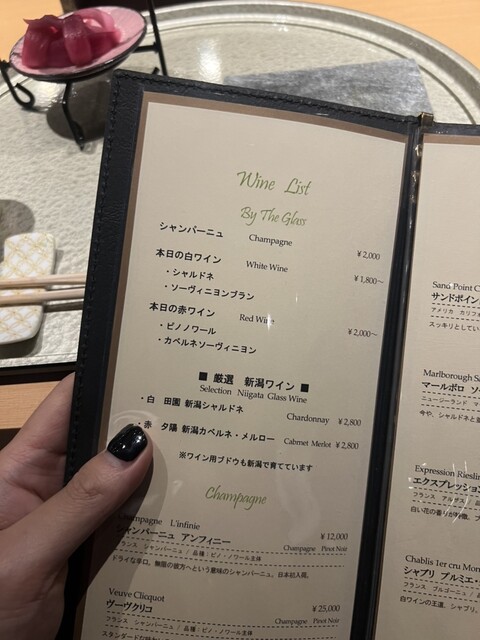 Wine List
By The Glass
シャンパーニュ Champagne ¥2,000
本日の白ワイン White Wine ¥1,800～
・シャルドネ
・ソーヴィニヨンブラン
本日の赤ワイン Red Wine ¥2,000～
・ピノノワール
・カベルネソーヴィニヨン
■ 厳選 新潟ワイン ■
Selection Niigata Glass Wine
・白 田園 新潟シャルドネ
Chardonnay ¥2,800
・赤 夕陽 新潟カベルネ・メルロー Cabrnet Merlot ¥2,800
※ワイン用ブドウも新潟で育てています
Champagne
Champagne L'infinie ¥12,000
シャンパーニュ アンフィニー Champagne Pinot Noir
フランス シャンパーニュ / 品種：ピノ・ノワール主体
ドライな辛口。無限の彼方へという意味のシャンパーニュ。日本初入荷。
Veuve Clicquot ¥25,000
ヴーヴクリコ Champagne Pinot Noir
フランス シャンパーニュ / 品種：ピノ・ノワール主体
スタンダード
Sand Point
サンドポイン
アメリカ カリフォ
スッキリとしてい
Marlborough Sa
マールボロ ソー
ニュージーランド
今や、シャルドネと
Expression Rieslin
エクスプレッション
フランス アルザス
白い花の香りが特徴。フ
Chablis 1er cru Mon
シャブリ プルミエ・
フランス ブルゴーニュ
白ワインの王道、シャブリ。